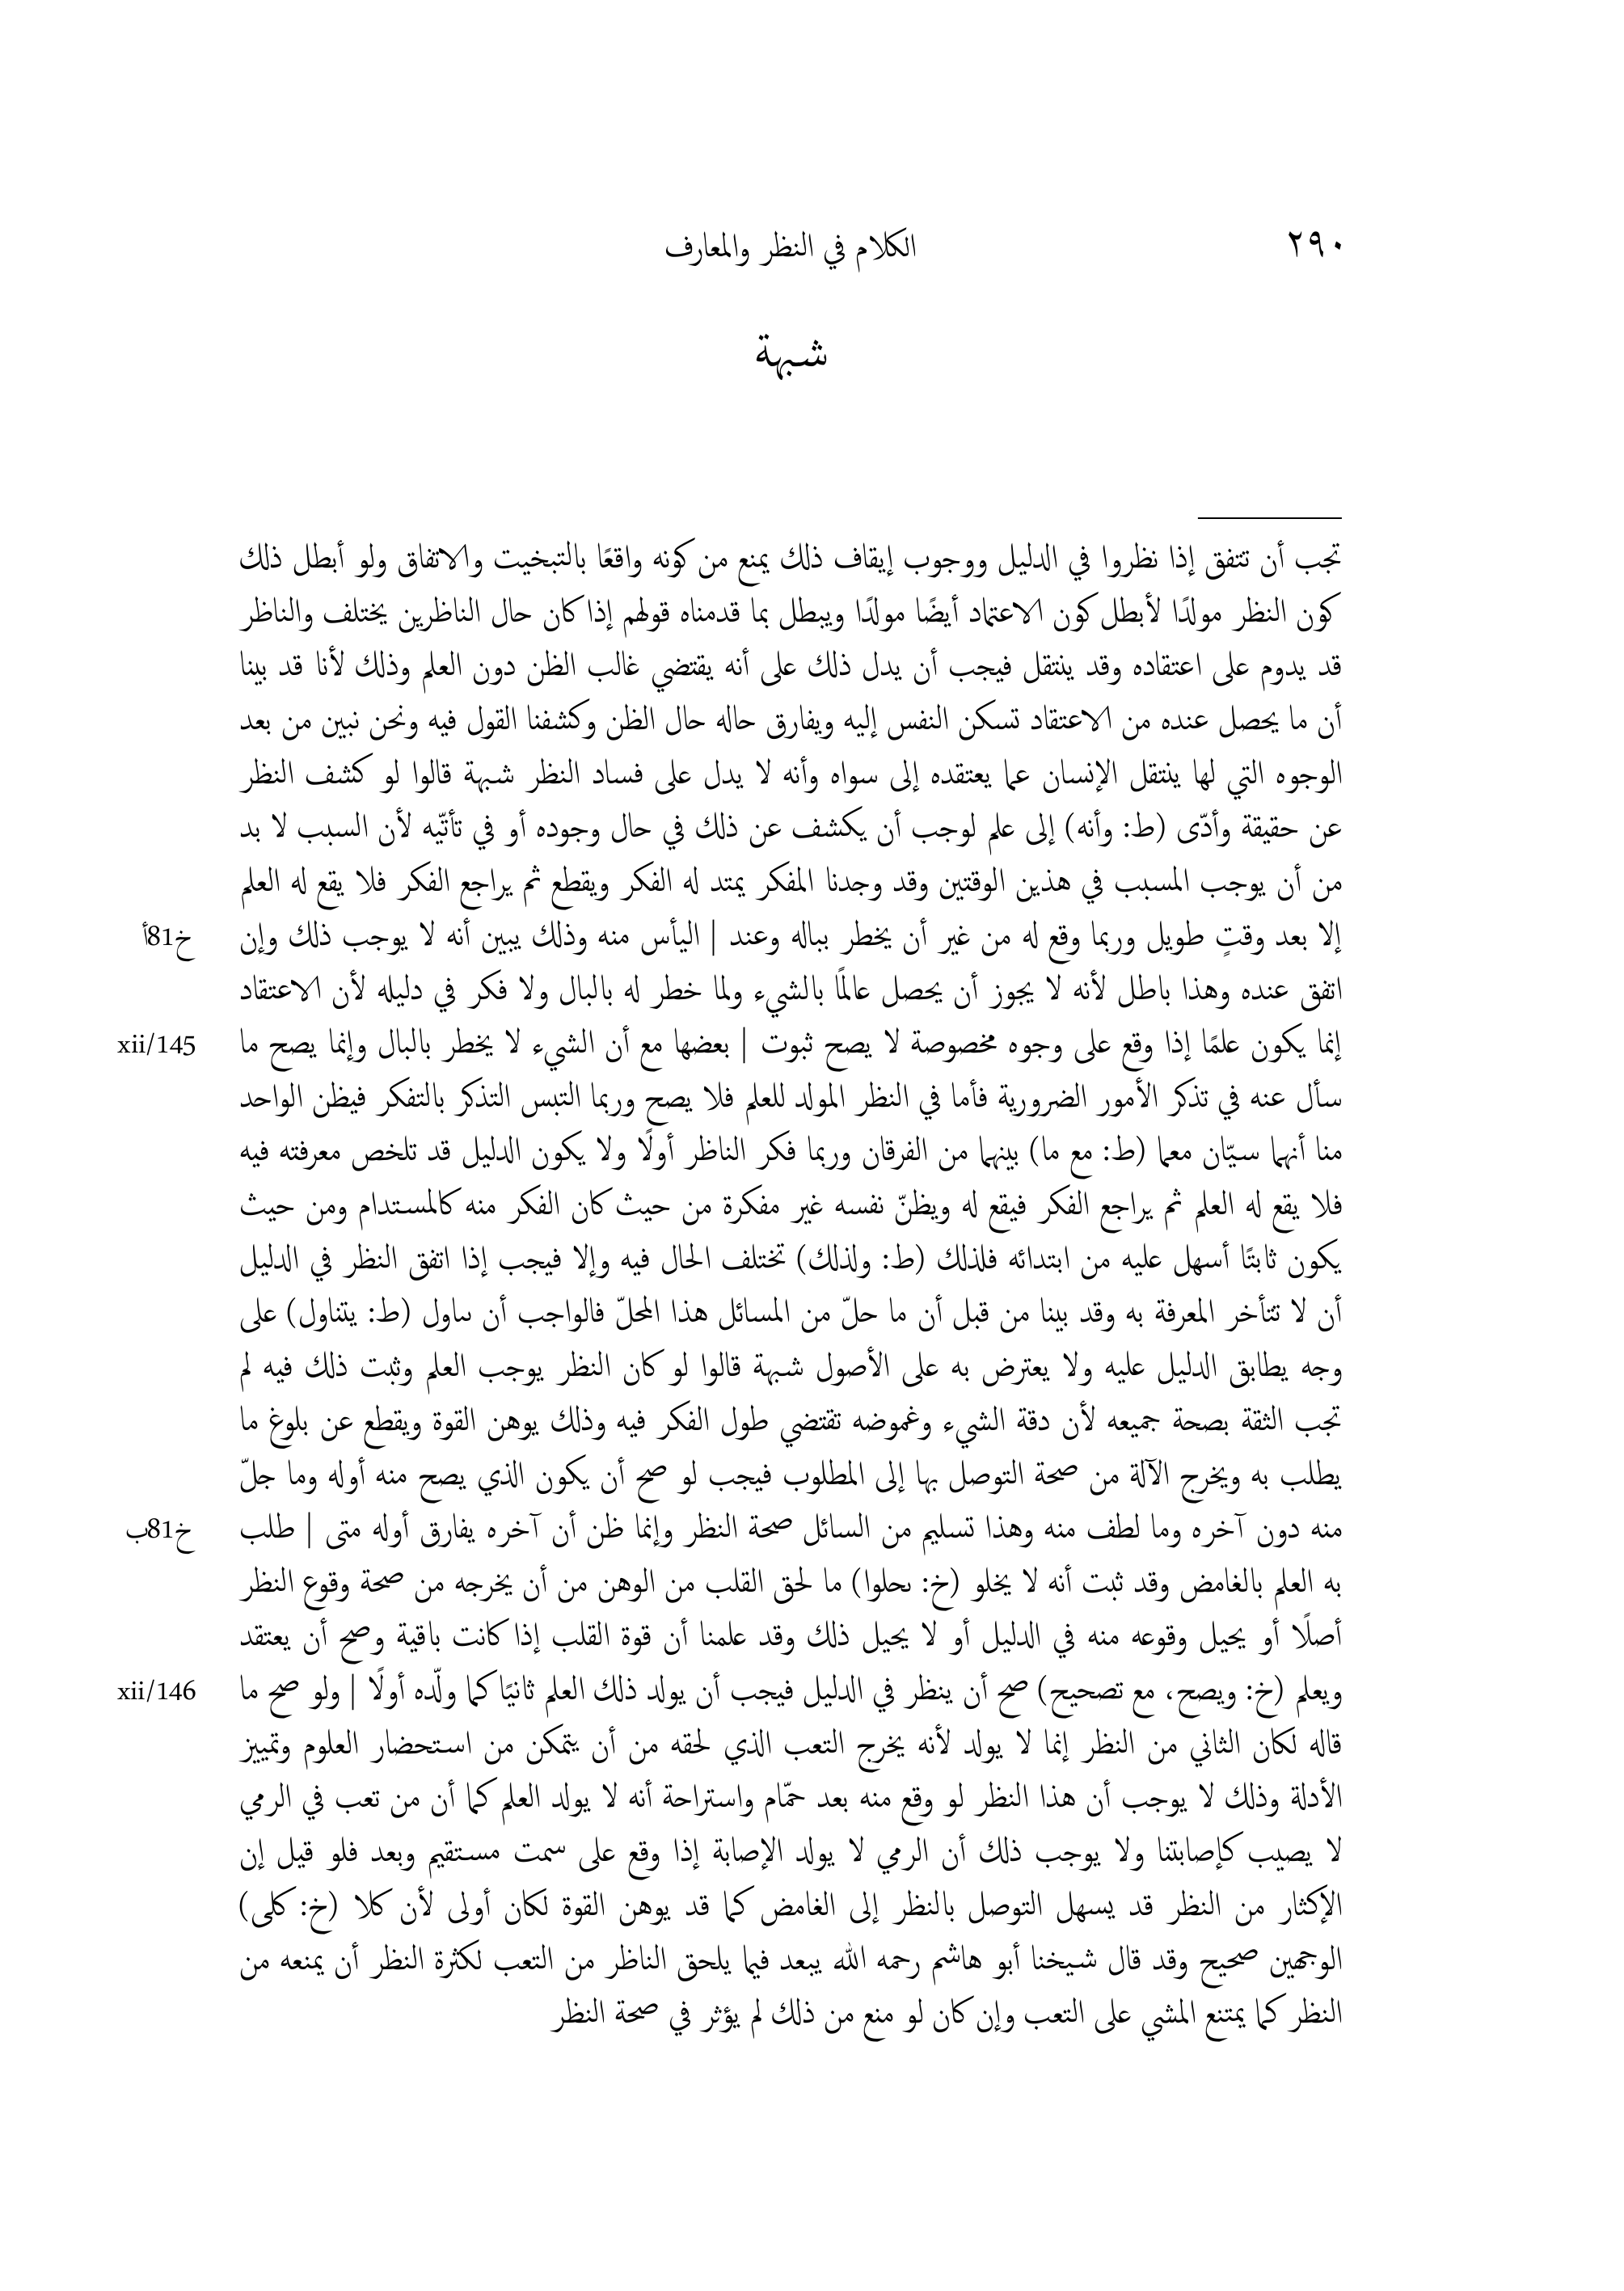 ٢٩٠
الكلام في النظر والمعارف
شبهة
تجب أن تتفق إذا نظروا في الدليل ووجوب إيقاف ذلك يمنع من كونه واقعًا بالتبخيت والاتفاق ولو أبطل ذلك
كون النظر مولدًا لأبطل كون الاعتماد أيضًا مولدًا ويبطل بما قدمناه قولهم إذا كان حال الناظرين يختلف والناظر
قد يدوم على اعتقاده وقد ينتقل فيجب أن يدل ذلك على أنه يقتضي غالب الظن دون العلم وذلك لأنا قد بينا
أن ما يحصل عنده من الاعتقاد تسكن النفس إليه ويفارق حاله حال الظن وكشفنا القول فيه ونحن نبين من بعد
الوجوه التي لها ينتقل الإنسان عما يعتقده إلى سواه وأنه لا يدل على فساد النظر شبهة قالوا لو كشف النظر
عن حقيقة وأدّى (ط: وأنه) إلى علم لوجب أن يكشف عن ذلك في حال وجوده أو في تأتّيه لأن السبب لا بد
من أن يوجب المسبب في هذين الوقتين وقد وجدنا المفكر يمتد له الفكر ويقطع ثم يراجع الفكر فلا يقع له العلم
إلا بعد وقتٍ طويل وربما وقع له من غير أن يخطر بباله وعند | اليأس منه وذلك يبين أنه لا يوجب ذلك وإن
خ81أ
اتفق عنده وهذا باطل لأنه لا يجوز أن يحصل عالمًا بالشيء ولما خطر له بالبال ولا فكر في دليله لأن الاعتقاد
إنما يكون علمًا إذا وقع على وجوه مخصوصة لا يصح ثبوت | بعضها مع أن الشيء لا يخطر بالبال وإنما يصح ما
xii/145
سأل عنه في تذكر الأمور الضرورية فأما في النظر المولد للعلم فلا يصح وربما التبس التذكر بالتفكر فيظن الواحد
منا أنهما سيّان معما (ط: مع ما) بينهما من الفرقان وربما فكر الناظر أولًا ولا يكون الدليل قد تلخص معرفته فيه
فلا يقع له العلم ثم يراجع الفكر فيقع له ويظنّ نفسه غير مفكرة من حيث كان الفكر منه كالمستدام ومن حيث
يكون ثابتًا أسهل عليه من ابتدائه فلذلك (ط: ولذلك) تختلف الحال فيه وإلا فيجب إذا اتفق النظر في الدليل
أن لا تتأخر المعرفة به وقد بينا من قبل أن ما حلّ من المسائل هذا المحلّ فالواجب أن ٮٮاول (ط: يتناول) على
وجه يطابق الدليل عليه ولا يعترض به على الأصول شبهة قالوا لو كان النظر يوجب العلم وثبت ذلك فيه لم
تجب الثقة بصحة جميعه لأن دقة الشيء وغموضه تقتضي طول الفكر فيه وذلك يوهن القوة ويقطع عن بلوغ ما
يطلب به ويخرج الآلة من صحة التوصل بها إلى المطلوب فيجب لو صح أن يكون الذي يصح منه أوله وما جلّ
منه دون آخره وما لطف منه وهذا تسليم من السائل صحة النظر وإنما ظن أن آخره يفارق أوله متى | طلب
خ81ب
به العلم بالغامض وقد ثبت أنه لا يخلو (خ: ٮحلوا) ما لحق القلب من الوهن من أن يخرجه من صحة وقوع النظر
أصلًا أو يحيل وقوعه منه في الدليل أو لا يحيل ذلك وقد علمنا أن قوة القلب إذا كانت باقية وصح أن يعتقد
ويعلم (خ: ويصح، مع تصحيح) صح أن ينظر في الدليل فيجب أن يولد ذلك العلم ثانيًا كما ولّده أولًا | ولو صح ما
xii/146
قاله لكان الثاني من النظر إنما لا يولد لأنه يخرج التعب الذي لحقه من أن يتمكن من استحضار العلوم وتمييز
الأدلة وذلك لا يوجب أن هذا النظر لو وقع منه بعد حمّام واستراحة أنه لا يولد العلم كما أن من تعب في الرمي
لا يصيب كإصابتنا ولا يوجب ذلك أن الرمي لا يولد الإصابة إذا وقع على سمت مستقيم وبعد فلو قيل إن
الإكثار من النظر قد يسهل التوصل بالنظر إلى الغامض كما قد يوهن القوة لكان أولى لأن كلا (خ: كلى)
الوجهين صحيح وقد قال شيخنا أبو هاشم رحمه الله يبعد فيما يلحق الناظر من التعب لكثرة النظر أن يمنعه من
النظر كما يمتنع المشي على التعب وإن كان لو منع من ذلك لم يؤثر في صحة النظر